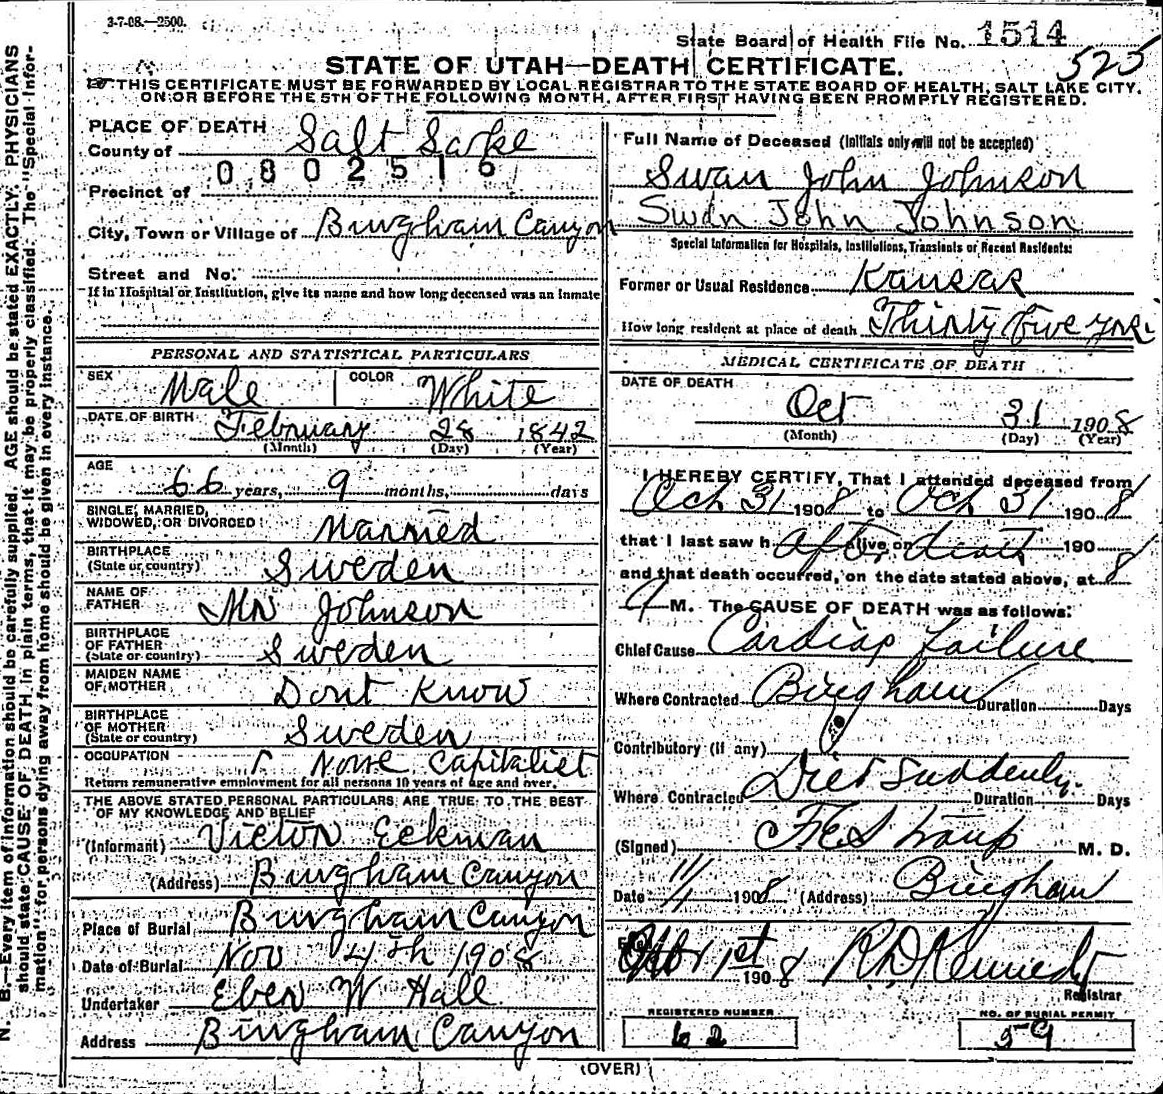 3-7-08.—2500.
State Board of Health File No. 1514
525
STATE OF UTAH—DEATH CERTIFICATE.
THIS CERTIFICATE MUST BE FORWARDED BY LOCAL REGISTRAR TO THE STATE BOARD OF HEALTH, SALT LAKE CITY,
ON OR BEFORE THE 5TH OF THE FOLLOWING MONTH, AFTER FIRST HAVING BEEN PROMPTLY REGISTERED.
N. B.—Every item of information should be carefully supplied. AGE should be stated EXACTLY. PHYSICIANS
should state CAUSE OF DEATH in plain terms, that it may be properly classified. The "Special Infor-
mation" for persons dying away from home should be given in every instance.
PLACE OF DEATH
County of Salt Lake
0802516
Precinct of
City, Town or Village of Bingham Canyon
Street and No.
If in Hospital or Institution, give its name and how long deceased was an inmate
PERSONAL AND STATISTICAL PARTICULARS
SEX Male COLOR White
DATE OF BIRTH February 28 1842
(Month) (Day) (Year)
AGE
66 years, 9 months, days
SINGLE, MARRIED,
WIDOWED, OR DIVORCED Married
BIRTHPLACE
(State or country) Sweden
NAME OF
FATHER Mr Johnson
BIRTHPLACE
OF FATHER
(State or country) Sweden
MAIDEN NAME
OF MOTHER Dont Know
BIRTHPLACE
OF MOTHER
(State or country) Sweden
OCCUPATION None Capitalist
Return remunerative employment for all persons 10 years of age and over.
THE ABOVE STATED PERSONAL PARTICULARS ARE TRUE TO THE BEST
OF MY KNOWLEDGE AND BELIEF
(Informant) Victor Eckman
(Address) Bingham Canyon
Place of Burial Bingham Canyon
Date of Burial Nov 4th 1908
Undertaker Eben W Hall
Address Bingham Canyon
Full Name of Deceased (Initials only will not be accepted)
Swan John Johnson
Swan John Johnson
Special Information for Hospitals, Institutions, Transients or Recent Residents:
Former or Usual Residence Kansas
How long resident at place of death Thirty five yrs.
MEDICAL CERTIFICATE OF DEATH
DATE OF DEATH
Oct 31 1908
(Month) (Day) (Year)
I HEREBY CERTIFY, That I attended deceased from
Oct 31 1908 to Oct 31 1908
that I last saw h after alive on death 190 8
and that death occurred, on the date stated above, at 8
A M. The CAUSE OF DEATH was as follows:
Chief Cause Cardiac failure
Where Contracted Bingham Duration Days
Contributory (if any)
Died Suddenly.
Where Contracted Duration Days
(Signed) F E Straup M. D.
Date 11/1 1908 (Address) Bingham
1st 1908 R D Kennedy
Registrar
REGISTERED NUMBER
62
NO. OF BURIAL PERMIT
59
(OVER)